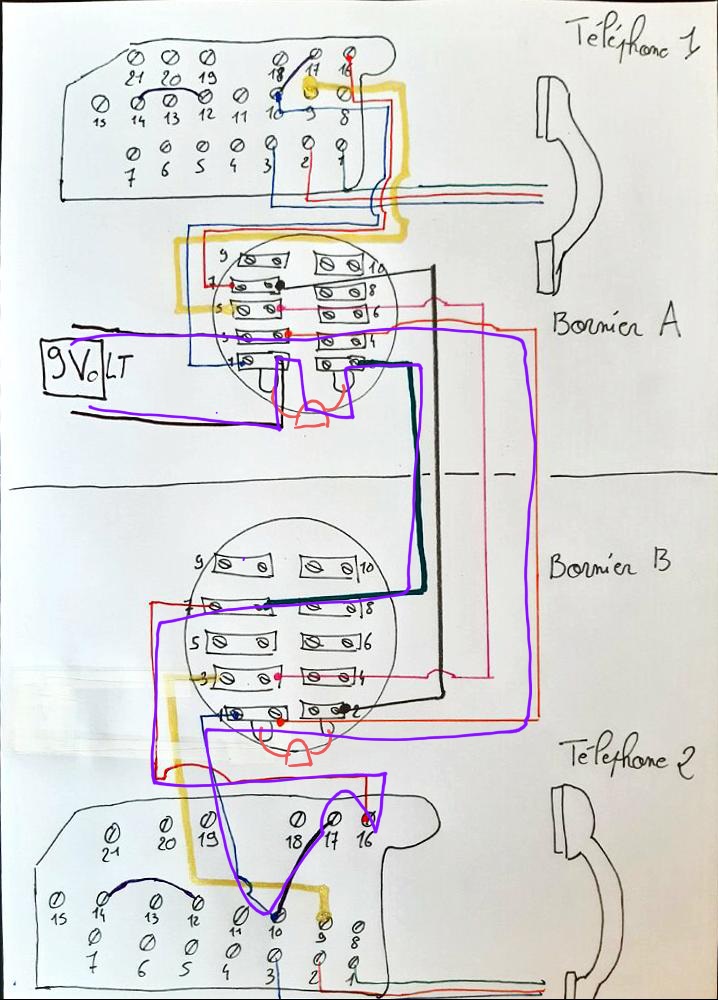 Téléphone 1
21 20 19 18 17 16
15 14 13 12 11 10 9 8
7 6 5 4 3 2 1
9 10
7 8
5 6
3 4
1
Bornier A
9 VoLT
Bornier B
9 10
7 8
5 6
3 4
1 2
Téléphone 2
21 20 19 18 17 16
15 14 13 12 11 10 9 8
7 6 5 4 3 2 1